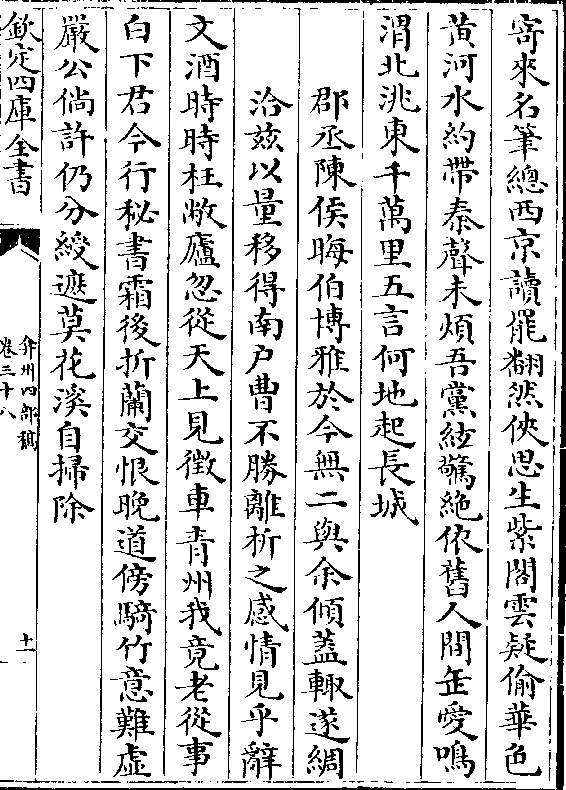 寄來名筆總西京讀罷翻然俠思生紫閣雲疑偷華色
黄河水約帶秦聲未煩吾黨絃驚絶依舊人間缶愛鳴
渭北洮東千萬里五言何地起長城
郡丞陳侯晦伯博雅於今無二與余傾葢輙遂綢
洽兹以量移得南户曹不勝離析之感情見乎辭
文酒時時枉敝廬忽從天上見徴車青州我竟老從事
白下君今行秘書霜後折蘭交恨晚道傍騎竹意難虚
嚴公倘許仍分綬遮莫花溪自掃除
欽定四庫全書
弇州四部稿
卷三十八
十一